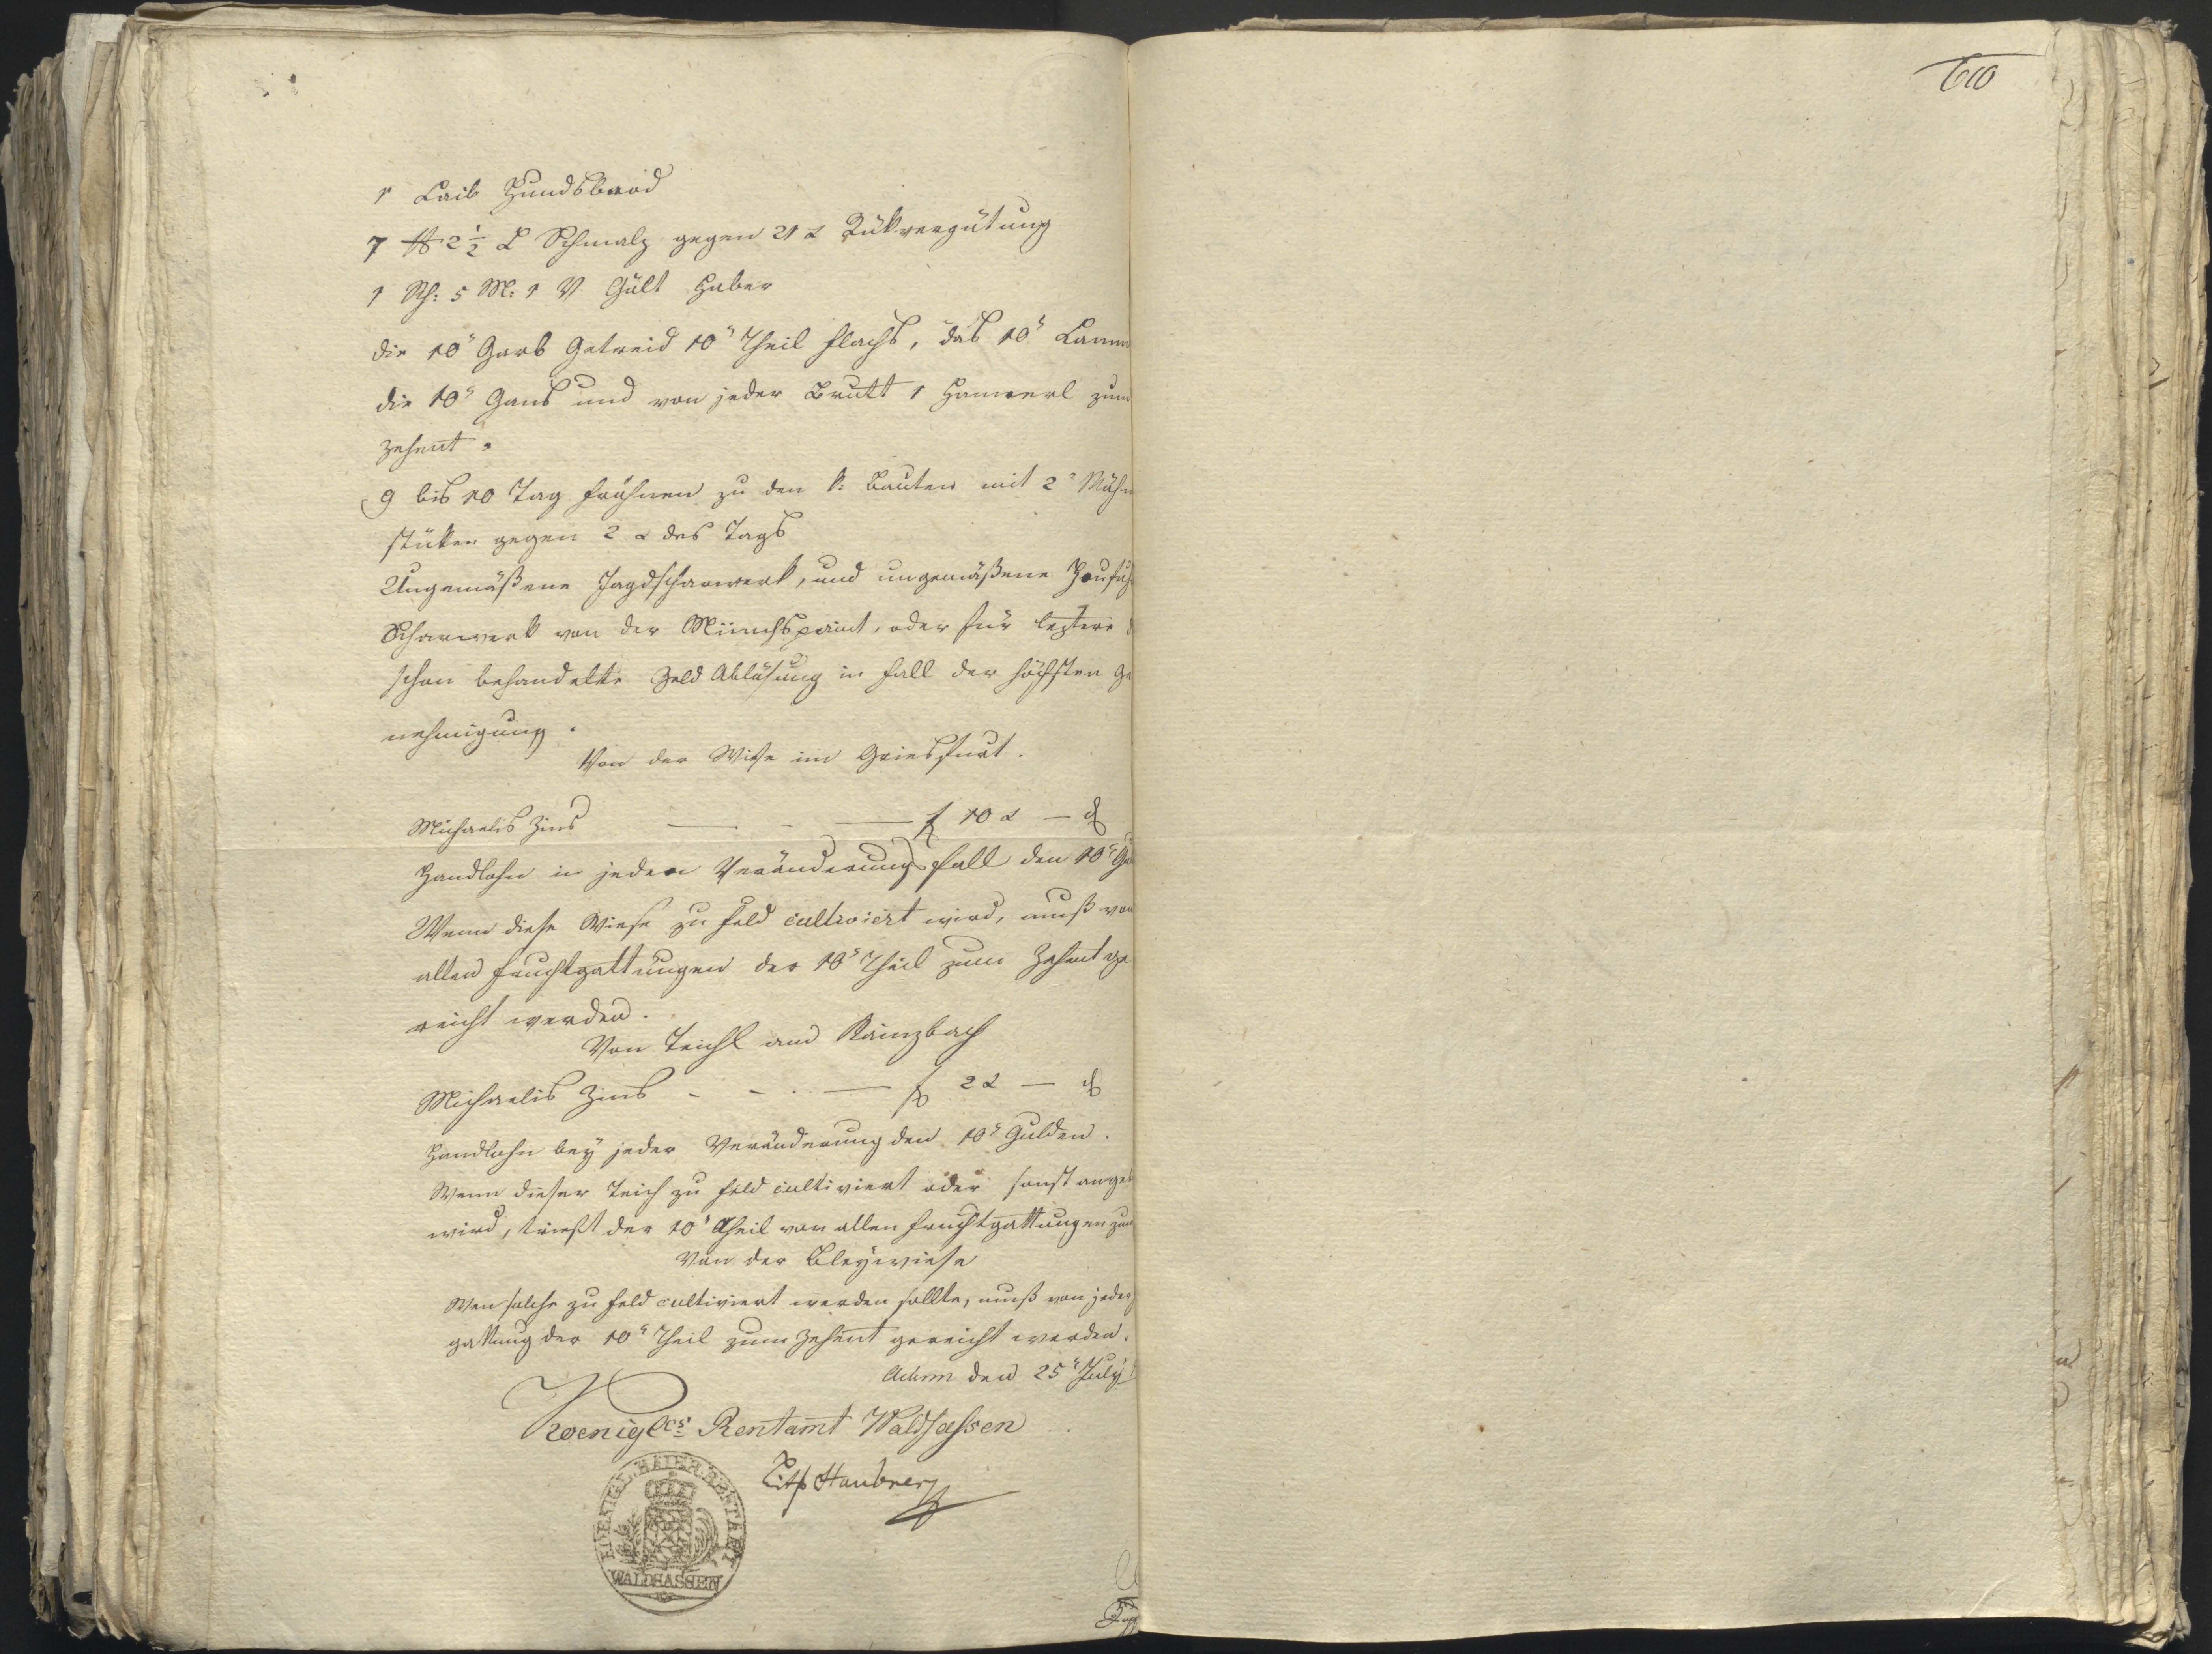 1 Laib Hundsbrod
7 ℔ 2 1/2 L Schmalz gegen 21 x Rükvergütung
1 Sch: 5 M: 1 V Gült Haber
die 10t Garb Getreid 10t Theil Flachs, das 10t Lamm
die 10t Gans und von jeder Brutt 1 Hannerl zum
Zehent.
9 bis 10 Tag frohnen zu den k: Bauten mit 2 Mähn
stüken gegen 2 x des Tags
Ungemäßene Jagdscharwerk, und ungemäßene Heufuhr
Scharwerk von der Münchspaint, oder für leztere
schon behandelte Geld Ablösung in Fall der höchsten Ge
nehmigung.
Von der Wiese im Griesfurt.
Michaelis Zins — - — f 10 x — d
Handlohn in jedem Veränderungsfall den 10t Gul
Wenn diese Wiese zu Feld cultiviert wird, muß von
allen Fruchtgattungen der 10t Theil zum Zehent ge
reicht werden.
Von Teichl am Kainzbach
Michaelis Zins - - — f 2 x — d
Handlohn bey jeder Veränderung den 10t Gulden.
Wenn dieser Teich zu Feld cultiviert oder sonst angeb
wird, trieft der 10t Theil von allen Fruchtgattungen zum
Von der Bleywiese
Wen solche zu Feld cultiviert werden sollte, muß von jeder
gattung der 10t Theil zum Zehent gereicht werden.
Actum den 25t July
Koenigl. Rentamt Waldsassen
KOENIGL. BAIER. RENTAMT
WALDSASSEN
610